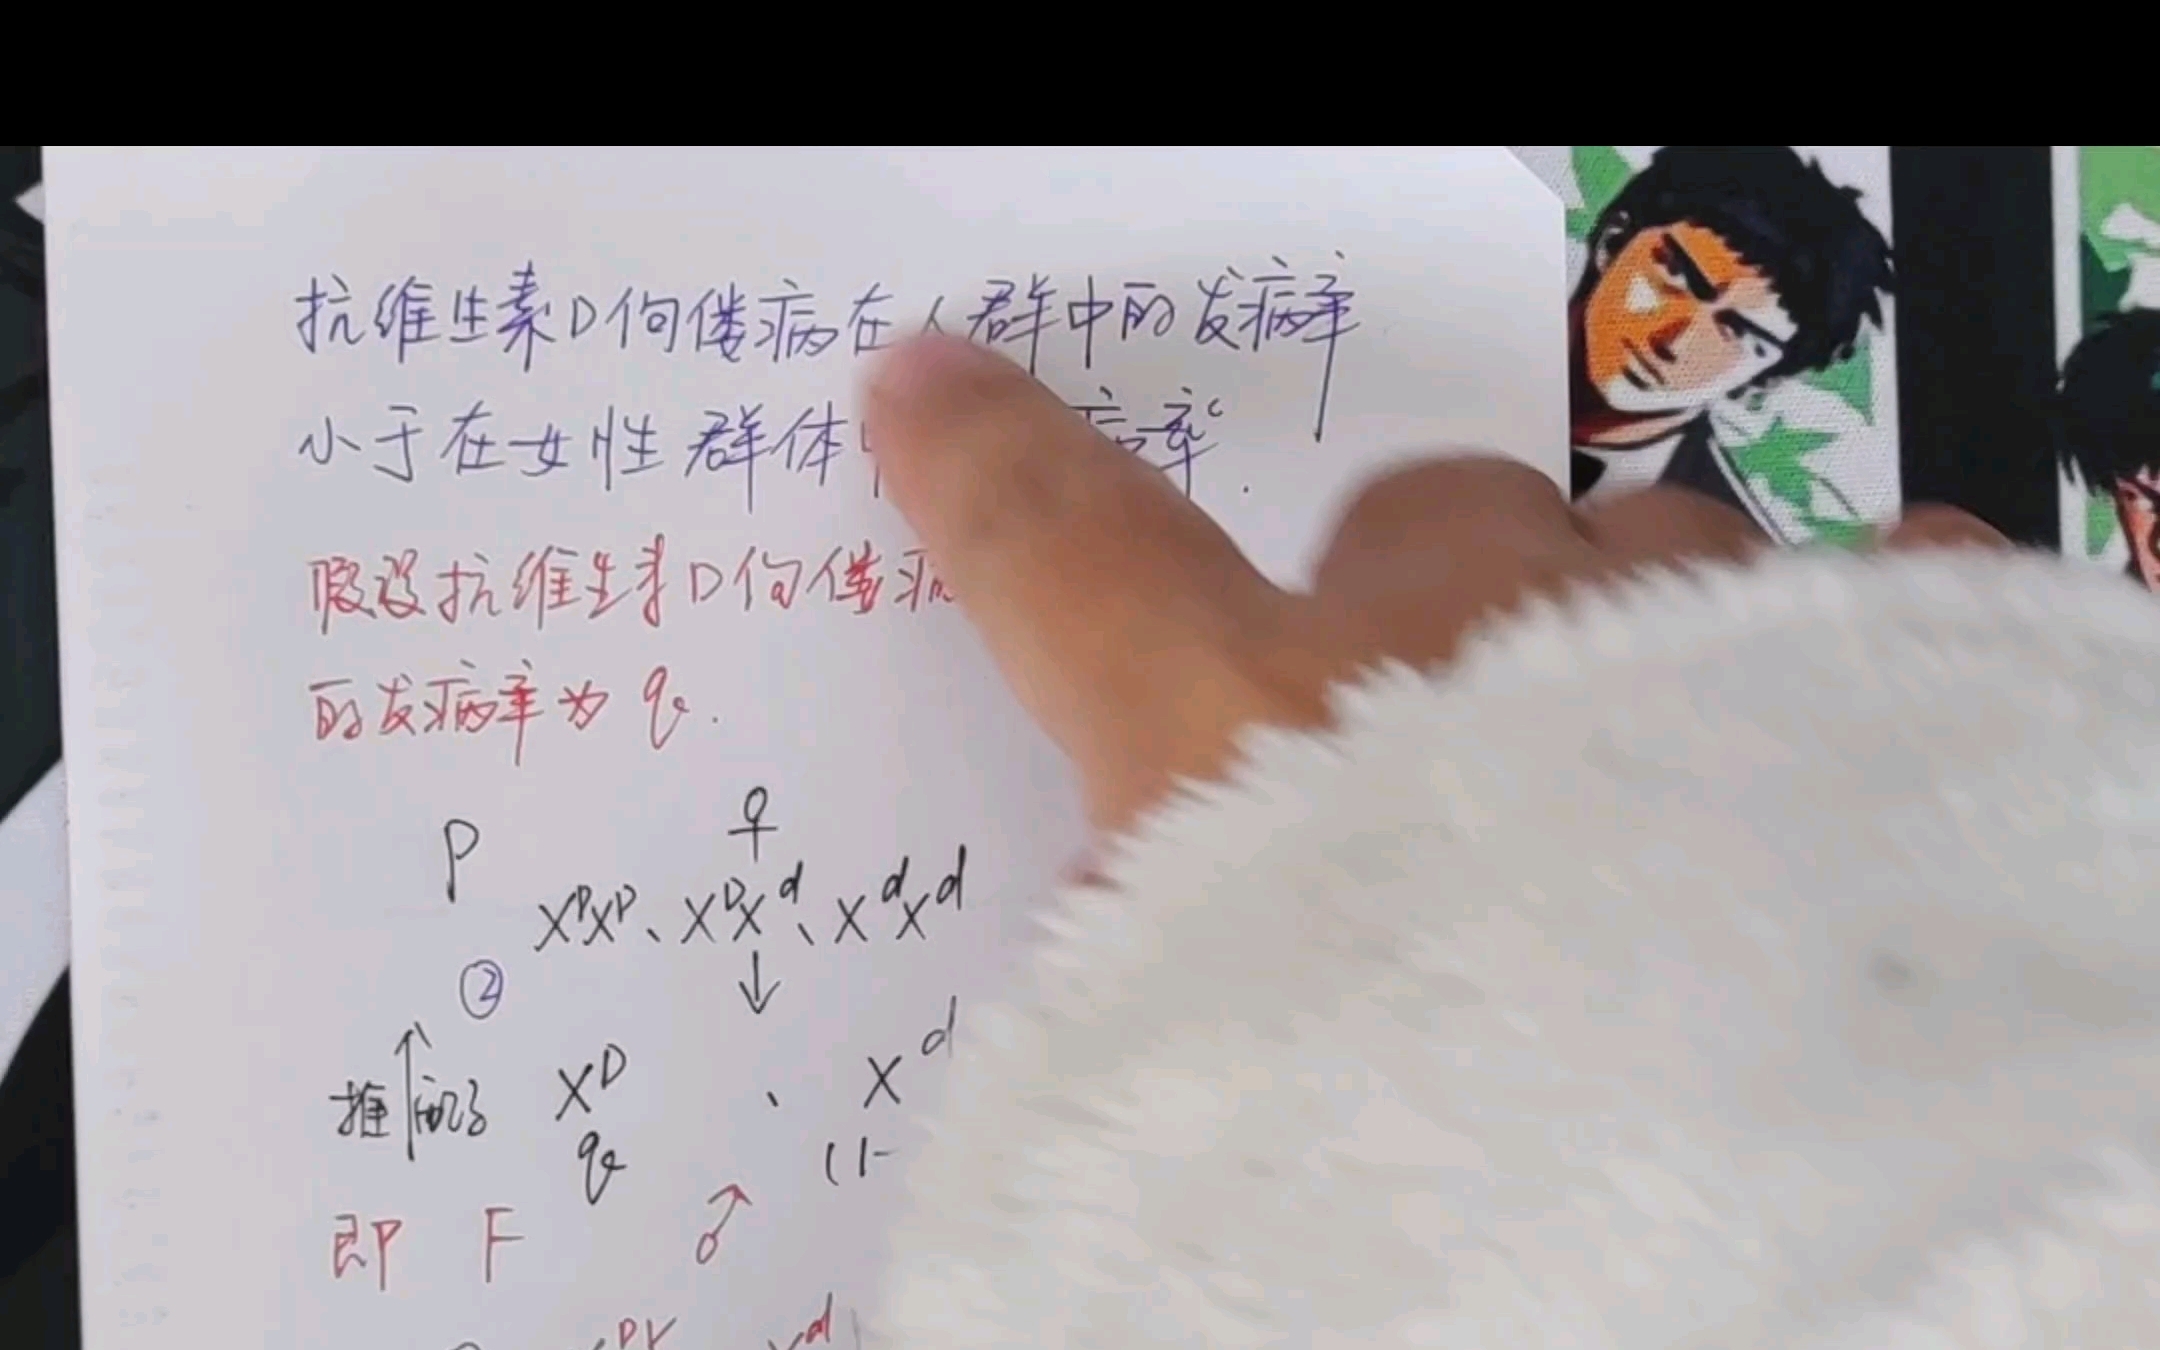 抗维生素D佝偻病在人群中的发病率
小于在女性群体中 病率.
假设抗维生素D佝偻病
的发病率为 q.
P ♀
XᴰXᴰ、XᴰXᵈ、XᵈXᵈ
②
↓
↑
推 配子 Xᴰ 、 Xᵈ
q (1-
即 F ♂